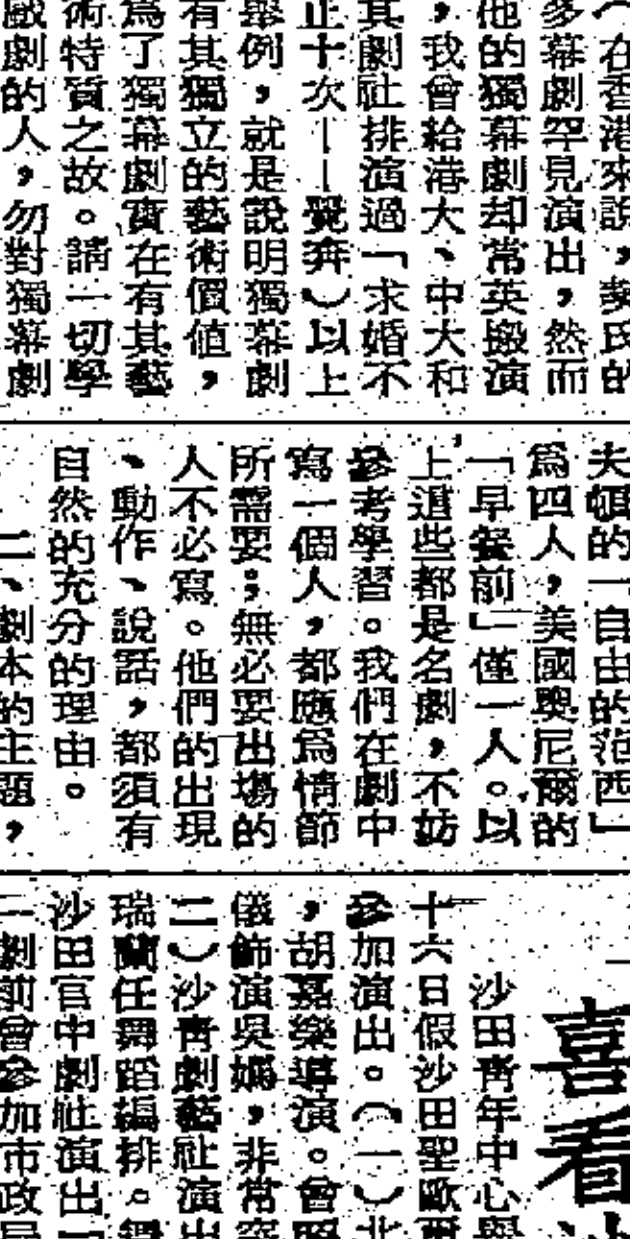 （在香港來說，契氏的
多幕劇罕見演出，然而
他的獨幕劇却常英搬演
，我曾給港大、中大和
其劇社排演過「求婚不
止十次——覺奔）以上
舉例，就是說明獨幕劇
有其獨立的藝術價値，
爲了獨幕劇實在有其藝
術特質之故。請一切學
戲劇的人，勿對獨幕劇
夫頓的一自由的范西」
爲四人，美國奧尼爾的
「早餐前」僅一人。以
上這些都是名劇，不妨
參考學習。我們在劇中
寫一個人，都應爲情節
所需要；無必要出塲的
人不必寫。他們的出現
、動作、說話，都須有
自然的充分的理由。
二、劇本的主題，
喜看沙
沙田靑年中心舉
十六日假沙田聖歐爾
參加演出。（一）北
，胡嘉樂導演。曾
儀飾演吳媽，非常
二）沙靑劇藝社演出
瑞蘭任舞蹈編排。
沙田官中劇社演出「
一劇前曾參加市政局